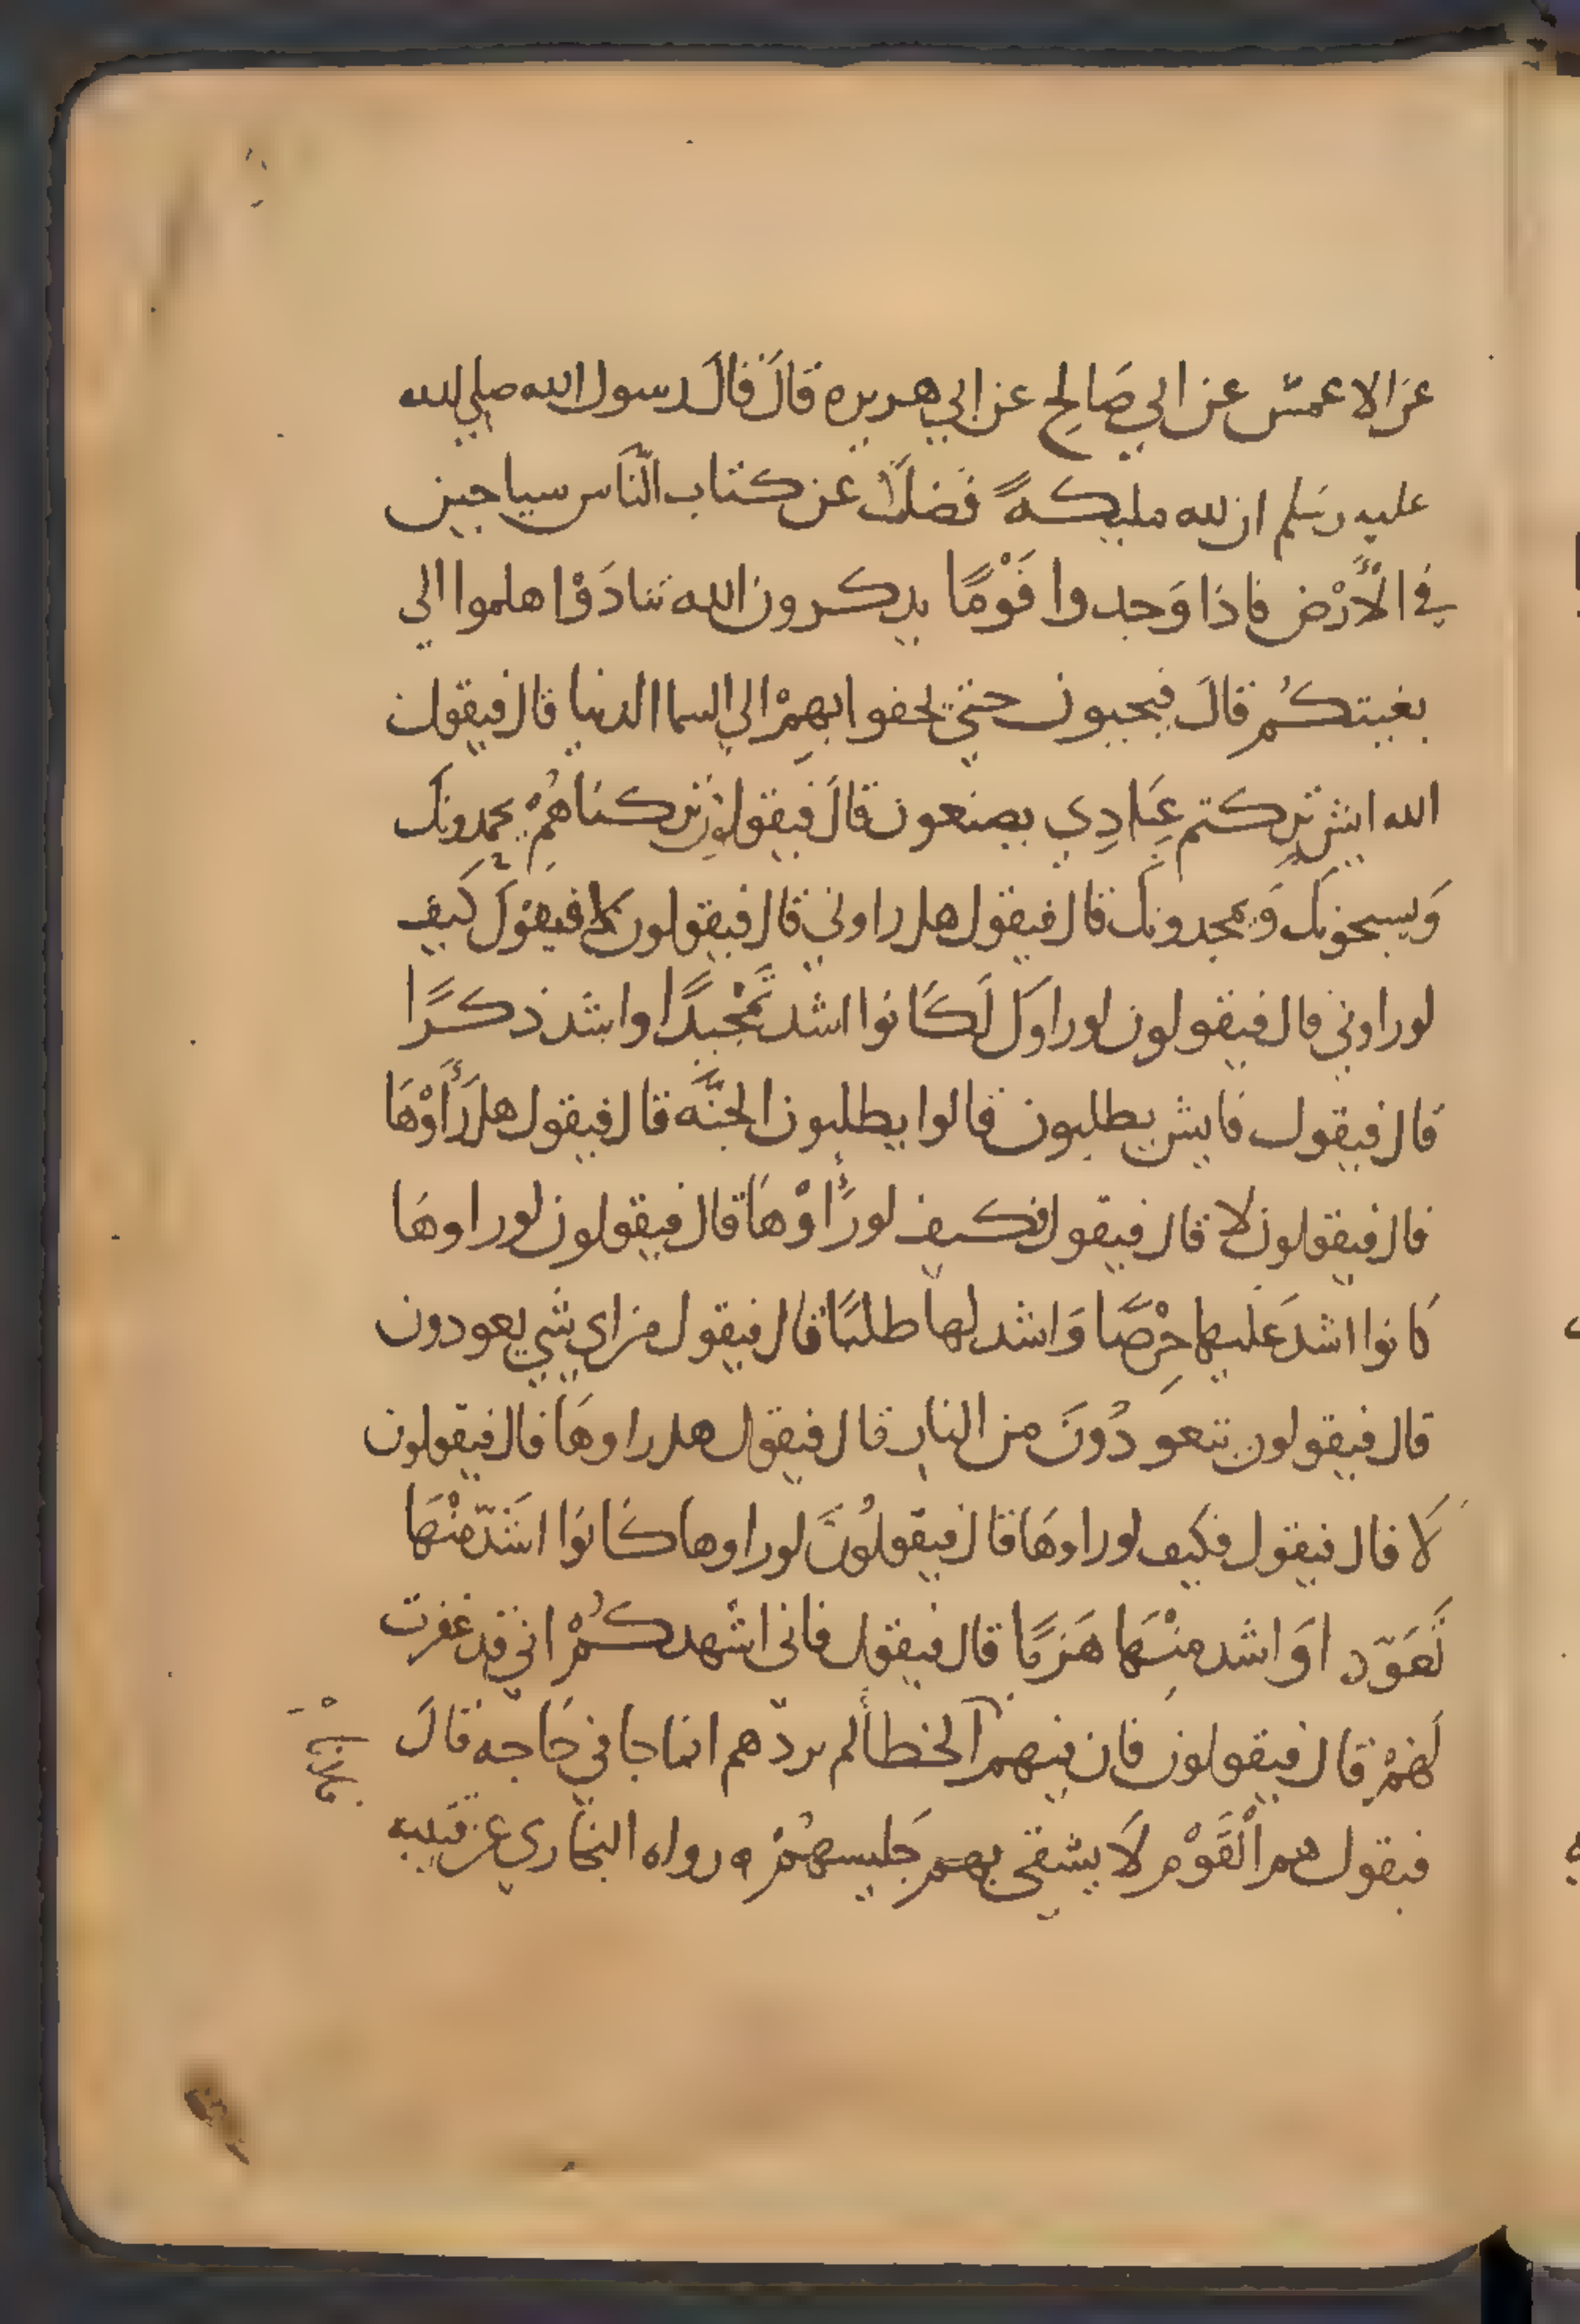 عن الاعمش عن ابي صَالِح عن ابي هريره قَالَ قَالَ رسول الله صلى الله
عليه وسَلم ان لله مليكةً فضلًا عن كتاب النَّاس سياحين
في الْأَرْض فاذا وَجدوا قَوْمًا يذكرون الله تنادَوْا هلموا الي
بغيتكُم قالَ فيجيون حتي يحفوا بهِمْ الي السما الدنيا قال فيقول
الله ايش تركتم عِبَادِي يصنعون قالَ فيقولون تركناهُمْ يحمدونك
وَيسبحونك وَيمجدونك قال فيقول هل راوني قال فيقولون لا فيقول كَيف
لو راوني قال فيقولون لو راوك لَكَانوا اشد تَمْجِيدًا واشد ذكرًا
قال فيقول فايش يطلبون قالوا يطلبون الجنَّه قال فيقول هل رَأَوْهَا
قال فيقولون لا قال فيقول فكيف لو رَأَوْهَا قال فيقولون لو راوهَا
كَانوا اشد عَليها حِرْصًا وَاشد لها طلبًا قال فيقول من اي شي يعودون
قال فيقولون يتعودُونَ من النار قال فيقول هل راوهَا قال فيقولون
لَا قال فيقول فكيف لو راوهَا قال فيقولُونَ لو راوها كَانوا اشَدّ مِنْهَا
تَعَوّد اوَ اشد مِنْهَا هَرَبًا قال فيقول فاني اشهدكُمْ اني قد غفرت
لَهُمْ قال فيقولون فان فيهم الخطأ لم يردّهم انما جا في حَاجه قالَ
فيقول هم الْقَوْم لَا يشقى بهم جَليسهُمْ ه رواه البخاري عن قتيبه